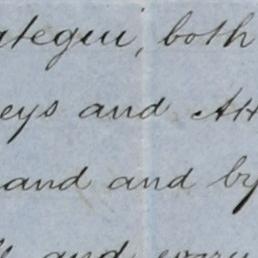 ategui, both
eys and Att
and and by
and every